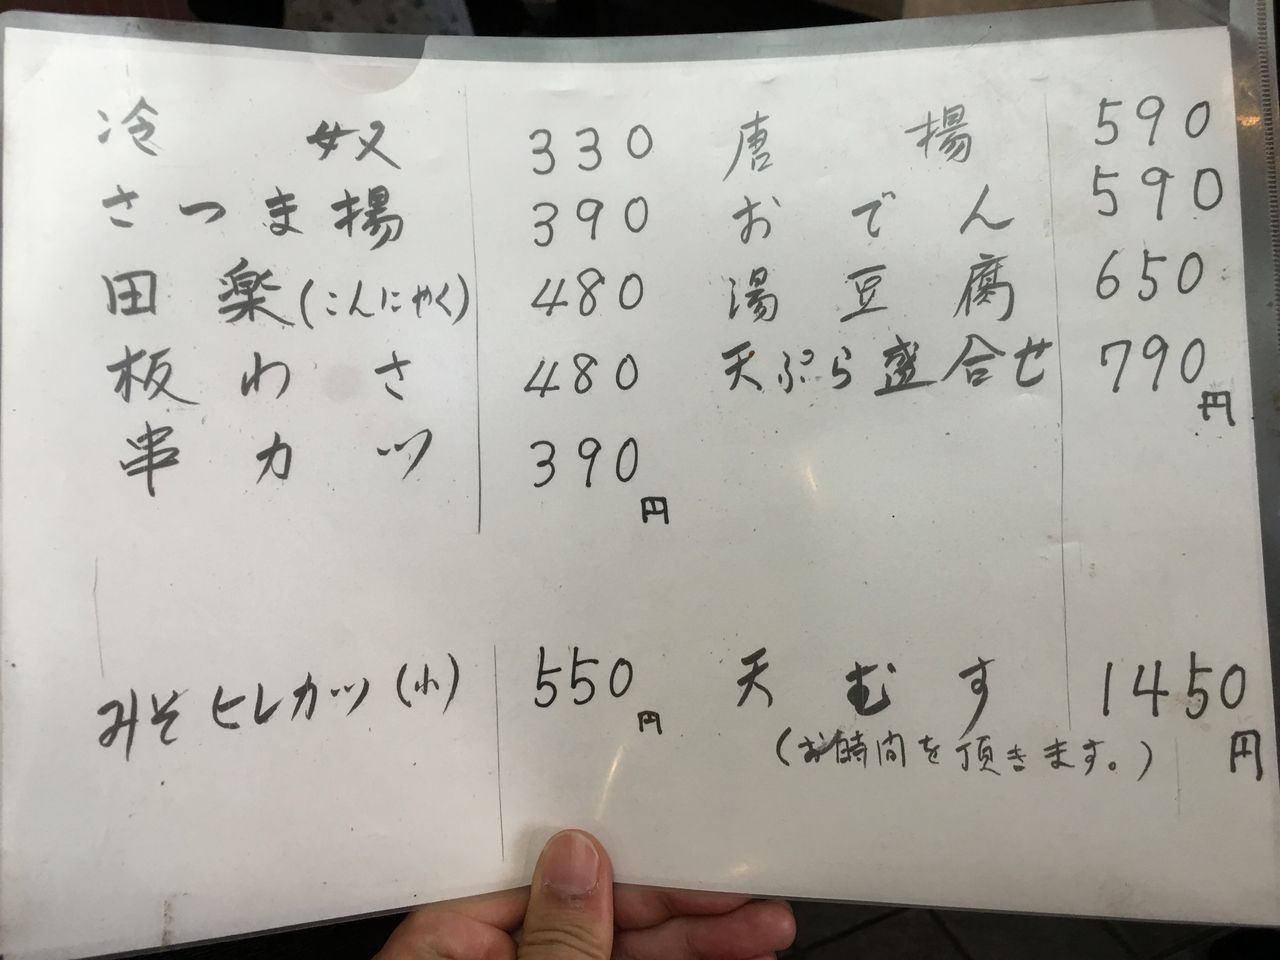 冷奴 330
さつま揚 390
田楽(こんにゃく) 480
板わさ 480
串カツ 390
円
唐揚 590
おでん 590
湯豆腐 650
天ぷら盛合せ 790
円
みそヒレカツ(小) 550
円
天むす 1450
円
(お時間を頂きます。)